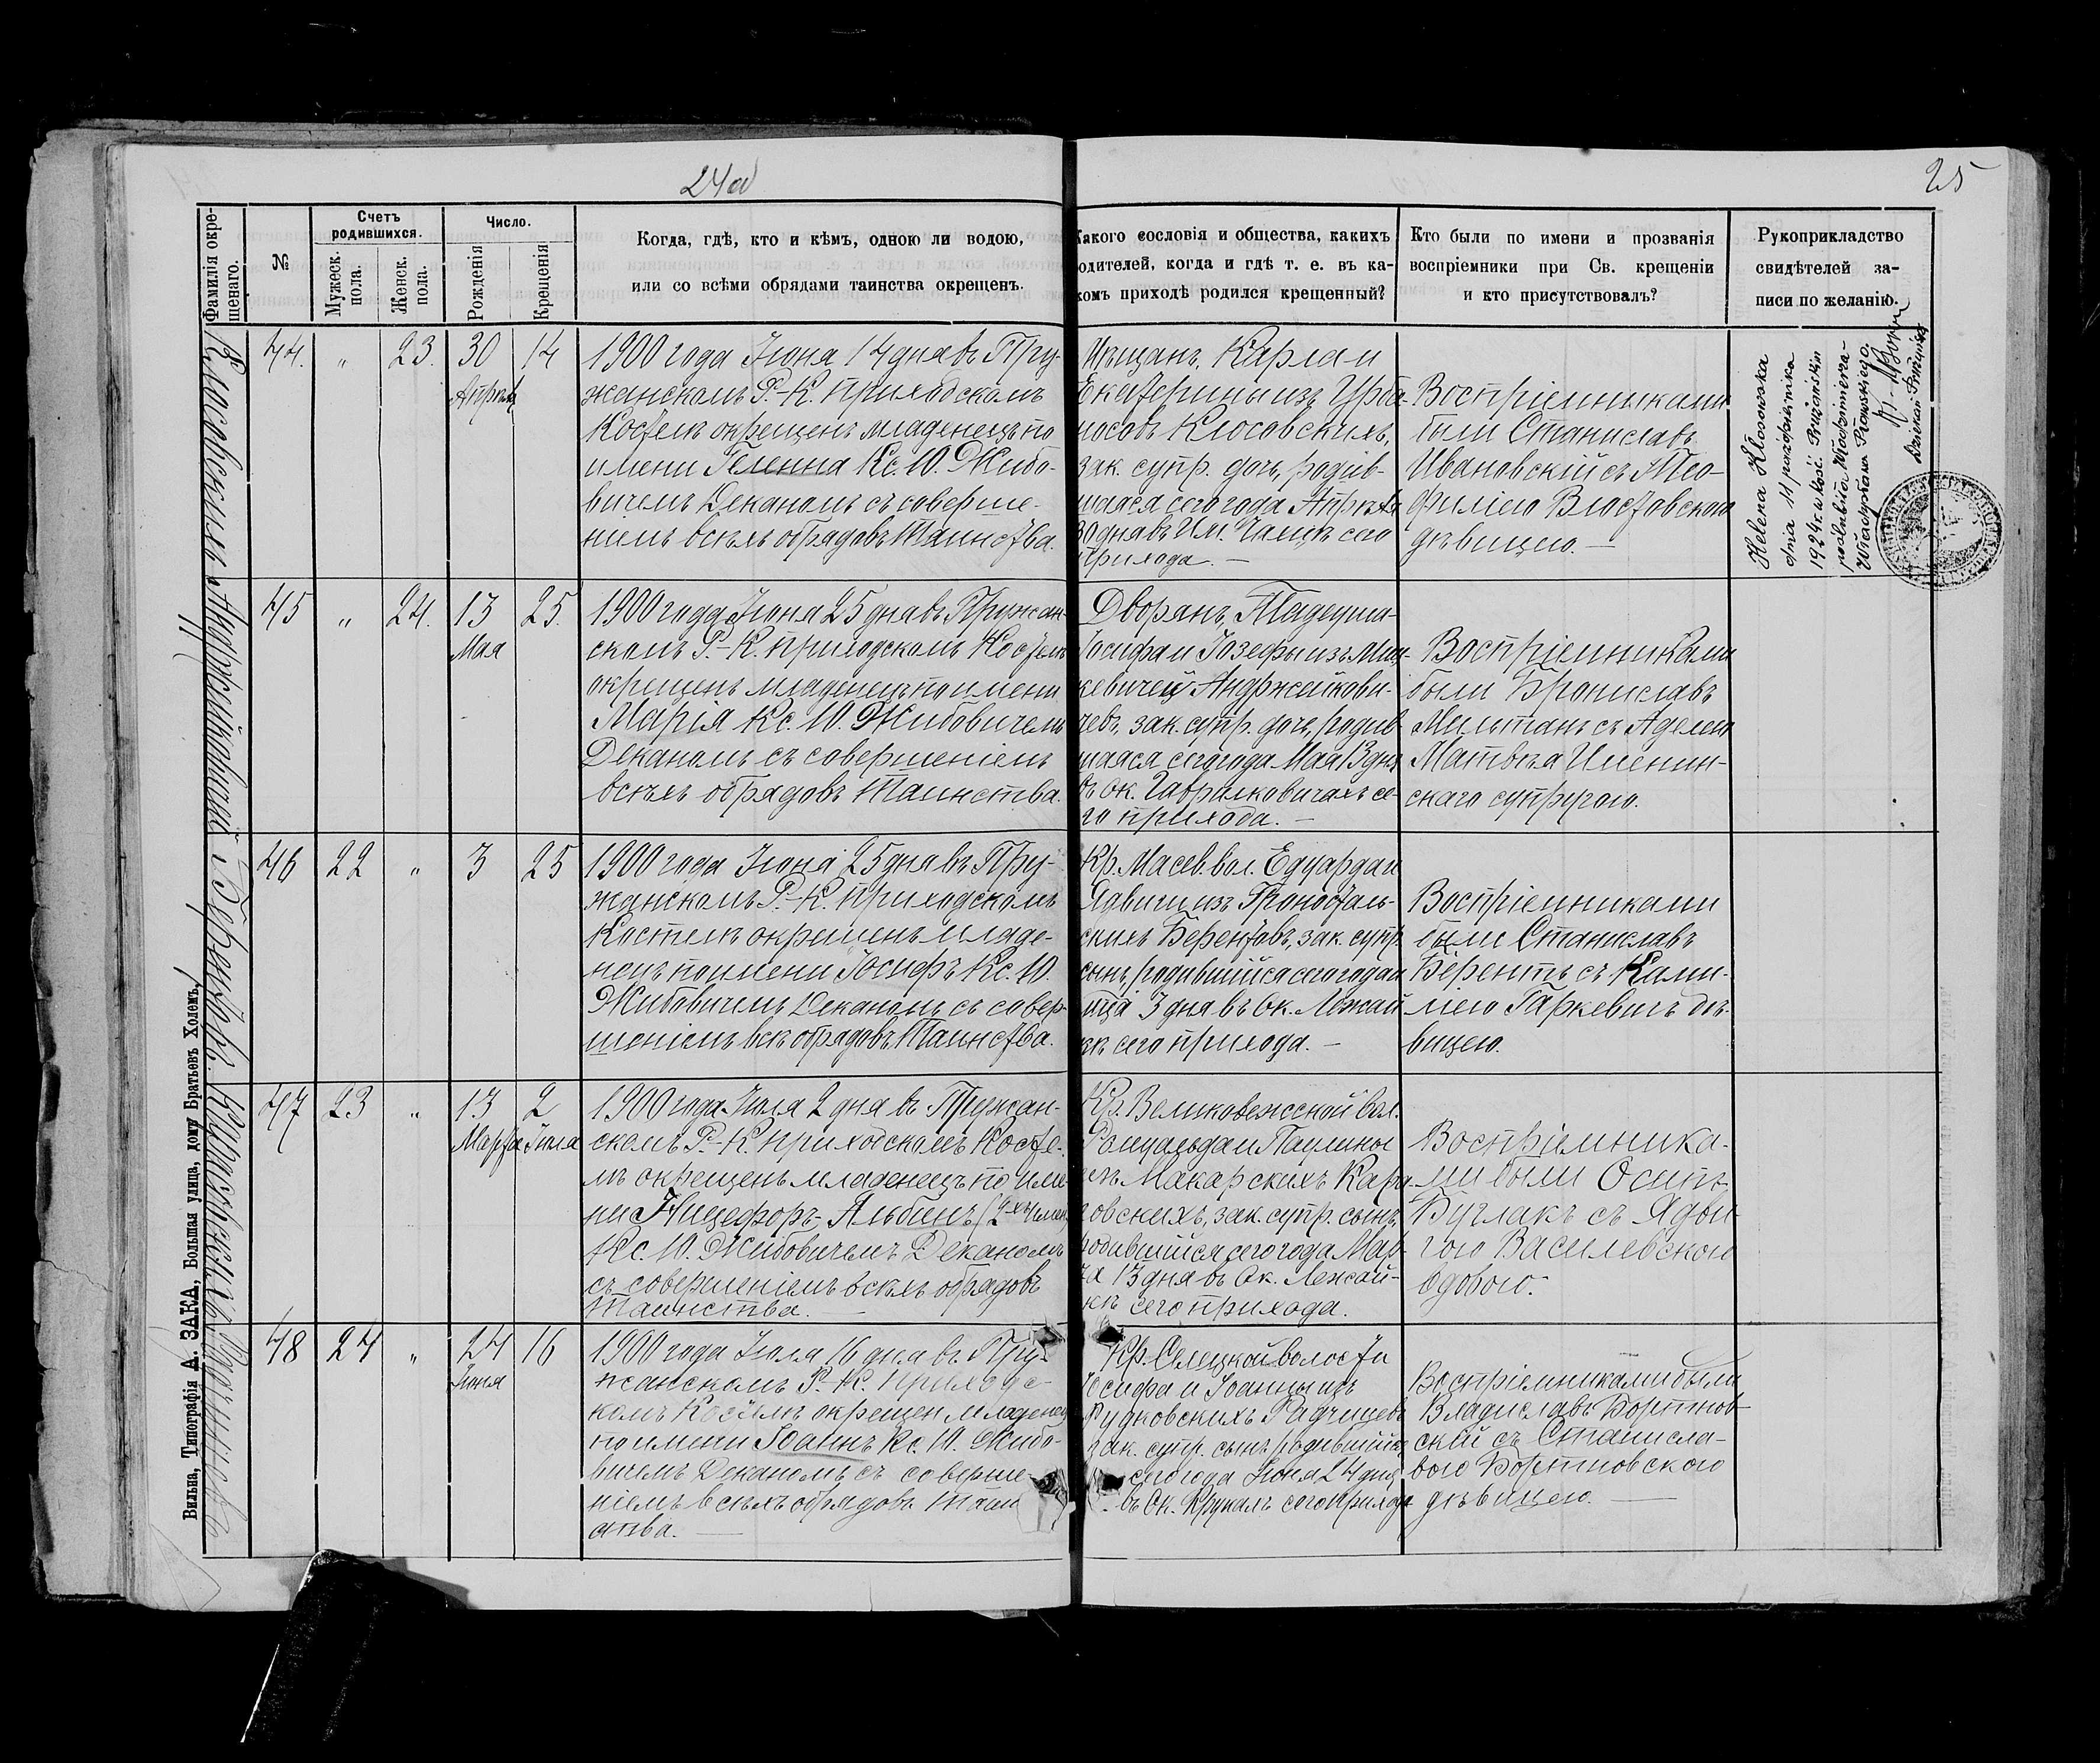 24об
25
Фамилія окре-
щенаго.
№
Счетъ
родившихся.
Мужеск.
пола.
Женск.
пола.
Число.
Рожденія
Крещенія
Когда, гдѣ, кто и кѣмъ, одною ли водою,
или со всѣми обрядами таинства окрещенъ.
Какого сословія и общества, какихъ
родителей, когда и гдѣ т. е. въ ка-
комъ приходѣ родился крещенный?
Кто были по имени и прозванія
воспріемники при Св. крещеніи
и кто присутствовалъ?
Рукоприкладство
свидѣтелей за-
писи по желанію.
44. " 23. 30 14
Апрѣля
1900 года Іюня 14 дня въ Пру-
жанскомъ Р.-К. приходскомъ
Костелѣ окрещенъ младенецъ по
имени Геленна Кс. Ю. Жибо-
вичемъ Деканомъ съ соверше-
ніемъ всѣхъ обрядовъ Таинства.
Мѣщанъ, Карла и
Екатерины изъ Урба-
носовъ Клосовскихъ,
зак. супр. дочь, родив-
шаяся сего года Апрѣля
30 дня въ Им. сего
прихода. —
Воспріемниками
были Станиславъ
Ивановскій съ Тео-
филіею Влостовскою
дѣвицею. —
Helena Kłosowska
dnia 11 października
1924 r. w kość. Prużańskim
poślubiła Włodzimierza-
Władysława
Dziekan Prużański
45 " 24. 13 25.
Мая
1900 года Іюня 25 дня въ Пружан-
скомъ Р.-К. приходскомъ Костелѣ
окрещенъ младенецъ по имени
Марія Кс. Ю. Жибовичемъ
Деканомъ съ совершеніемъ
всѣхъ обрядовъ Таинства.
Дворянъ, Тадеуша-
Іосифа и Іозефы изъ Миц-
кевичей Андржейкови-
чевъ, зак. супр. дочь, родив-
шаяся сего года Мая 13 дня
въ ок. Гавриловичахъ се-
го прихода. —
Воспріемниками
были Брониславъ
съ Аделею
Матвѣя Именин-
скаго супругою.
46 22 " 3 25
1900 года Іюня 25 дня въ Пру-
жанскомъ Р.-К. приходскомъ
Костелѣ окрещенъ младе-
нецъ по имени Іосифъ Кс. Ю.
Жибовичемъ Деканомъ съ совер-
шеніемъ всѣ обрядовъ Таинства.
Кр. Масев. вол. Едуарда и
Ядвиги изъ Гроносталь-
скихъ Берентовъ, зак. супр.
сынъ, родившійся сего года и
мца 3 дня въ Ок. Лежай-
кѣ сего прихода. —
Воспріемниками
были Станиславъ
Берентъ съ Ками-
лею Гаркевичъ дѣ-
вицею.
47 23 " 13 2
Марта Іюля
1900 года Іюля 2 дня въ Пружан-
скомъ Р.-К. приходскомъ Косте-
лѣ окрещенъ младенецъ по име-
ни Ницефоръ-Альбинъ (2-хъ имен.
Кс. Ю. Жибовичемъ Деканомъ
съ совершеніемъ всѣхъ обрядовъ
Таинства. —
Кр. Великовежской вол.
Ромуальда и Паулины
изъ Макарскихъ
зак. супр. сынъ,
родившійся сего года Мар-
та 13 дня въ Ок. Лежай-
кѣ сего прихода.
Воспріемника-
ми были Осипъ
Буглакъ съ Ядви-
гою Василевскою
вдовою.
48 24 " 24 16
Іюня
1900 года Іюля 16 дня въ Пру-
жанскомъ Р.-К. приходс-
комъ Костелѣ окрещен младенец
по имени Іоаннъ Кс. Ю. Жибо-
вичемъ Деканомъ съ соверше-
ніемъ всѣхъ обрядовъ Таин
ства. —
Кр. Селецкой волости
Іосифа и Іоанны изъ
Рудковскихъ Радчицевъ
зак. супр. сынъ родившійся
сего года Іюня 24 дня
въ Ок. сего прихода
Воспріемниками были
Владиславъ Бортнов-
скій съ Станисла-
вою Бортновскою
дѣвицею. —
Вильна, Типографія А. ЗАКА, Большая улица, домъ Братьевъ Холемъ.